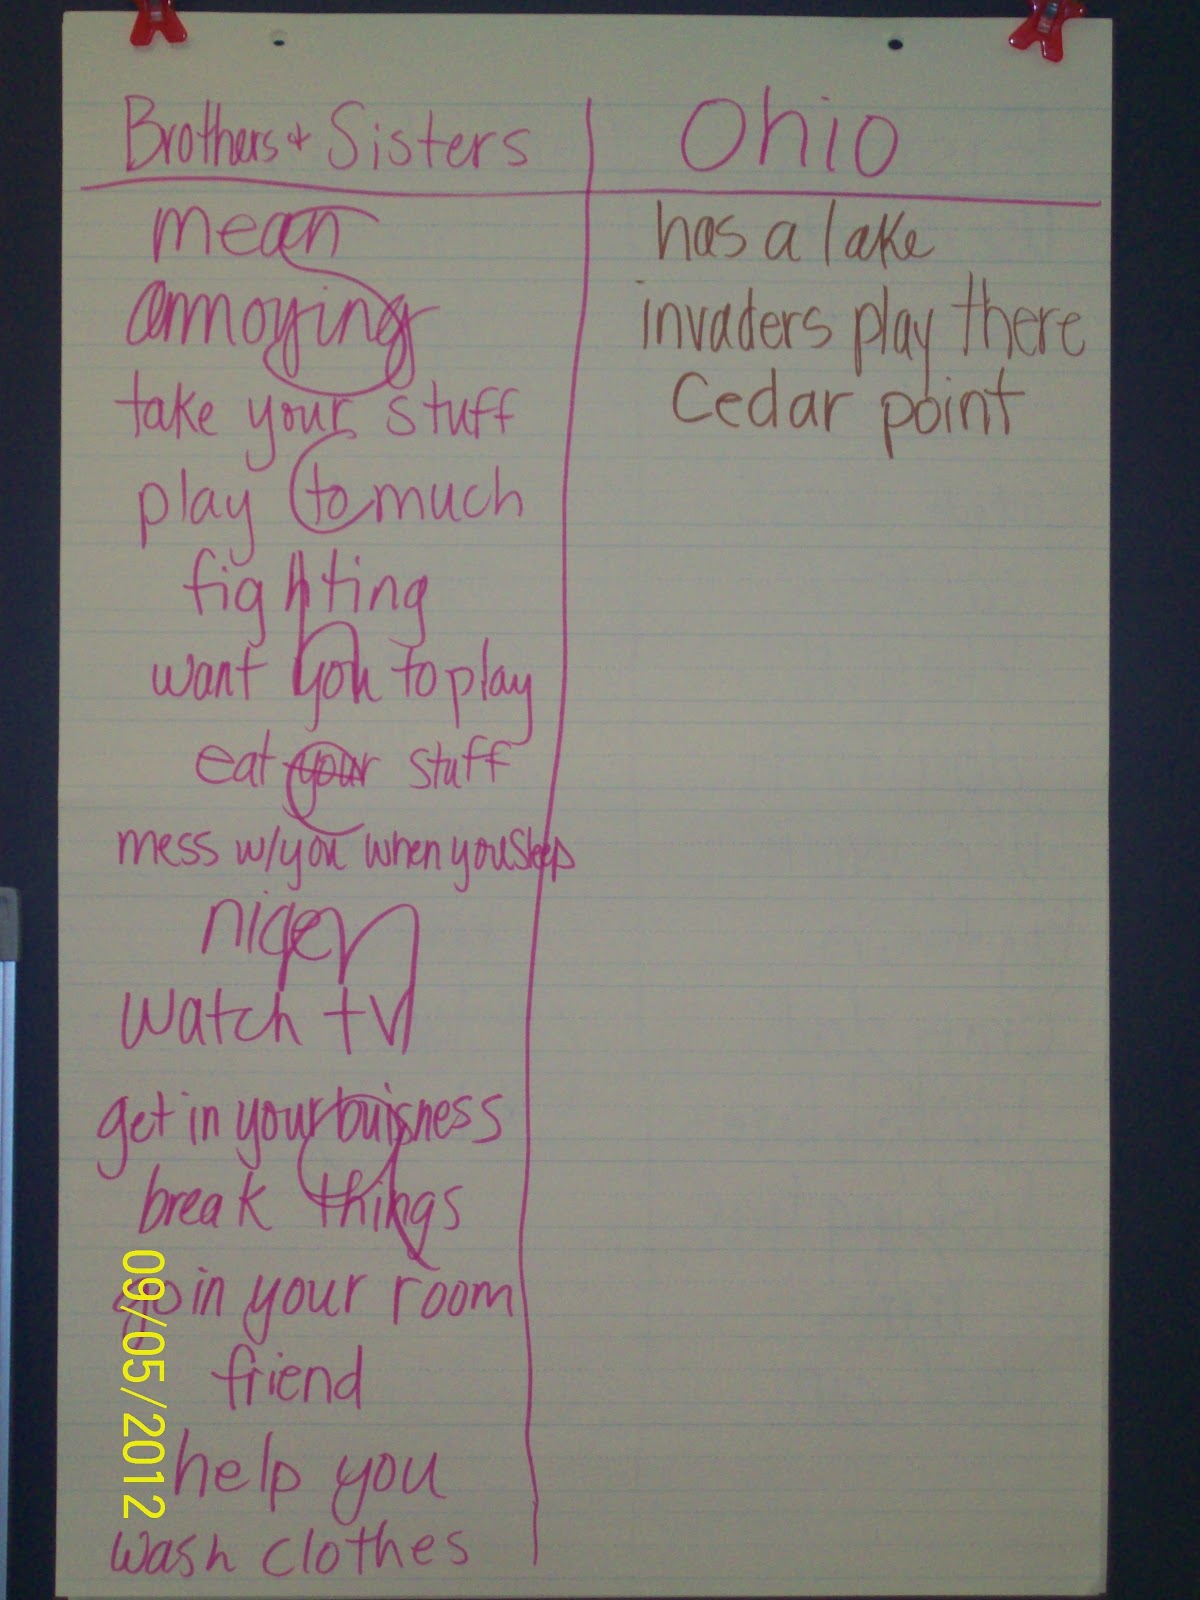 Brothers + Sisters
mean
annoying
take your stuff
play to much
fighting
want you to play
eat your stuff
mess w/you when you sleep
nice
watch tv
get in your buisness
break things
go in your room
friend
help you
wash clothes
Ohio
has a lake
invaders play there
Cedar point
09/05/2012